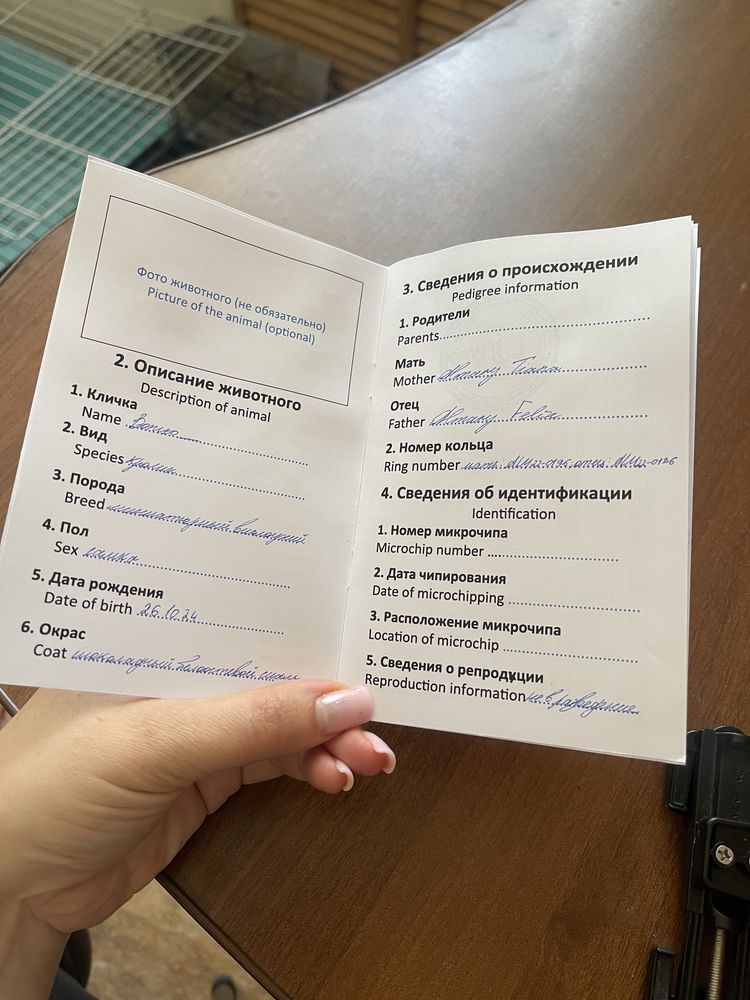 Фото животного (не обязательно)
Picture of the animal (optional)
2. Описание животного
Description of animal
1. Кличка
Name
2. Вид
Species Кролик
3. Порода
Breed миниатюрный вислоухий
4. Пол
Sex самка
5. Дата рождения
Date of birth 26.10.24
6. Окрас
Coat шоколадный
3. Сведения о происхождении
Pedigree information
1. Родители
Parents
Мать
Mother
Отец
Father Felix
2. Номер кольца
Ring number
4. Сведения об идентификации
Identification
1. Номер микрочипа
Microchip number
2. Дата чипирования
Date of microchipping
3. Расположение микрочипа
Location of microchip
5. Сведения о репродукции
Reproduction information не в разведение